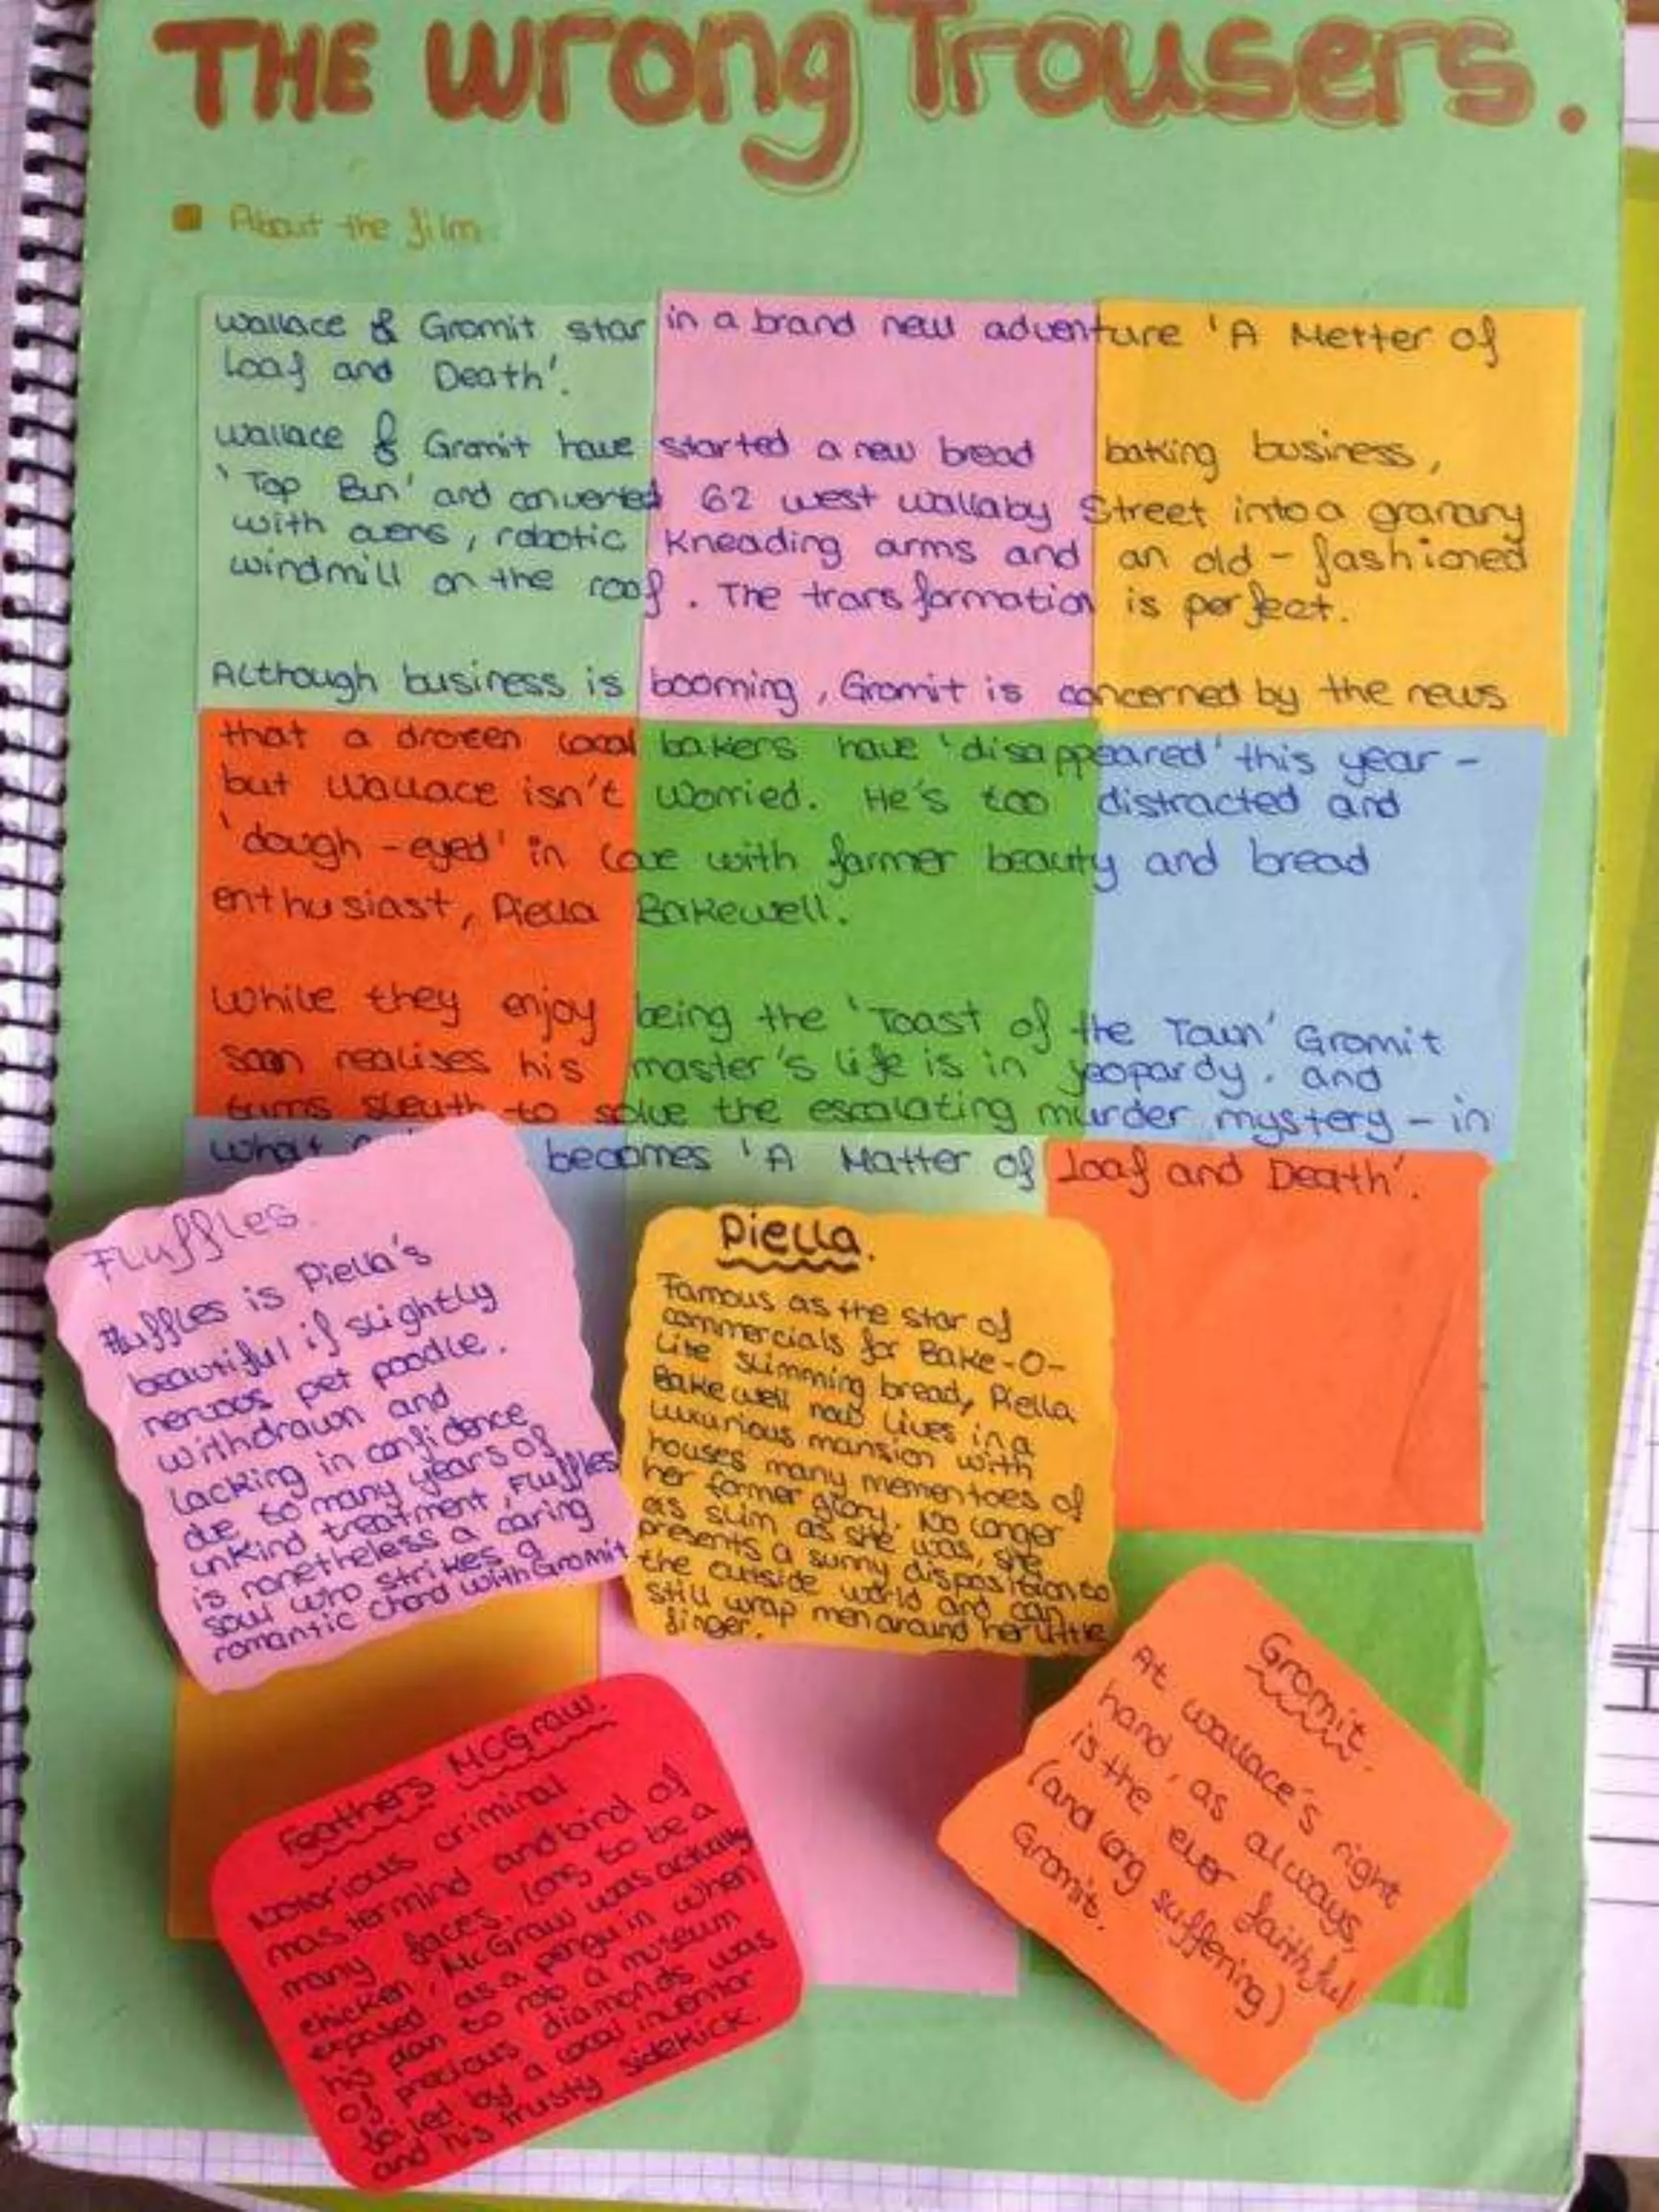 THE Wrong Trousers.
About the film
Wallace & Gromit star in a brand new adventure 'A Metter of
Loaf and Death'.
Wallace & Gromit have started a new bread baking business,
'Top Bun' and converted 62 west wallaby Street into a granary
with ovens, robotic kneading arms and an old-fashioned
windmill on the roof. The transformation is perfect.
Although business is booming, Gromit is concerned by the news
that a drozen local bakers have 'disappeared' this year -
but Wallace isn't worried. He's too distracted and
'dough-eyed' in love with farmer beauty and bread
enthusiast, Piella Bakewell.
While they enjoy being the 'Toast of the Town' Gromit
soon realises his master's life is in jeopardy. and
turns sleuth to solve the escalating murder mystery - in
what becomes 'A Matter of Loaf and Death'.
Fluffles.
Fluffles is Piella's
beautiful if slightly
nervous pet poodle.
withdrawn and
lacking in confidence
due to many years of
unkind treatment, Fluffles
is nonetheless a caring
soul who strikes a
romantic chord with Gromit
Piella.
Famous as the star of
commercials for Bake-O-
Lite slimming bread, Piella
Bakewell now lives in a
luxurious mansion with
houses many mementoes of
her former glory. No longer
as slim as she was, she
presents a sunny disposition to
the outside world and can
still wrap men around her little
finger.
Feathers McGraw.
Notorious criminal
mastermind and bird of
many faces. Long to be a
chicken, McGraw was actually
exposed as a penguin when
his plan to rob a museum
of precious diamonds was
foiled by a local inventor
and his trusty sidekick.
Gromit.
At wallace's right
hand, as always,
is the ever faithful
(and long suffering)
Gromit.